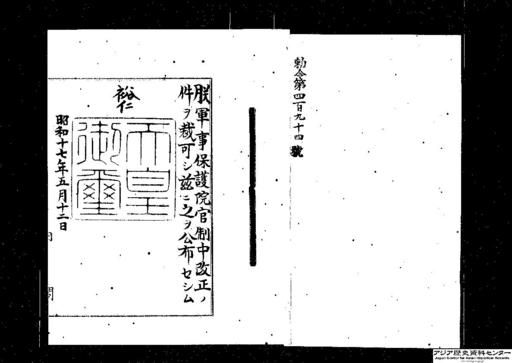 勅令第四百九十四號
朕軍事保護院官制中改正ノ
件ヲ裁可シ茲ニ之ヲ公布セシム
裕仁
天皇
御璽
昭和十七年五月十二日
内閣
アジア歴史資料センター
Japan Center for Asian Historical Records